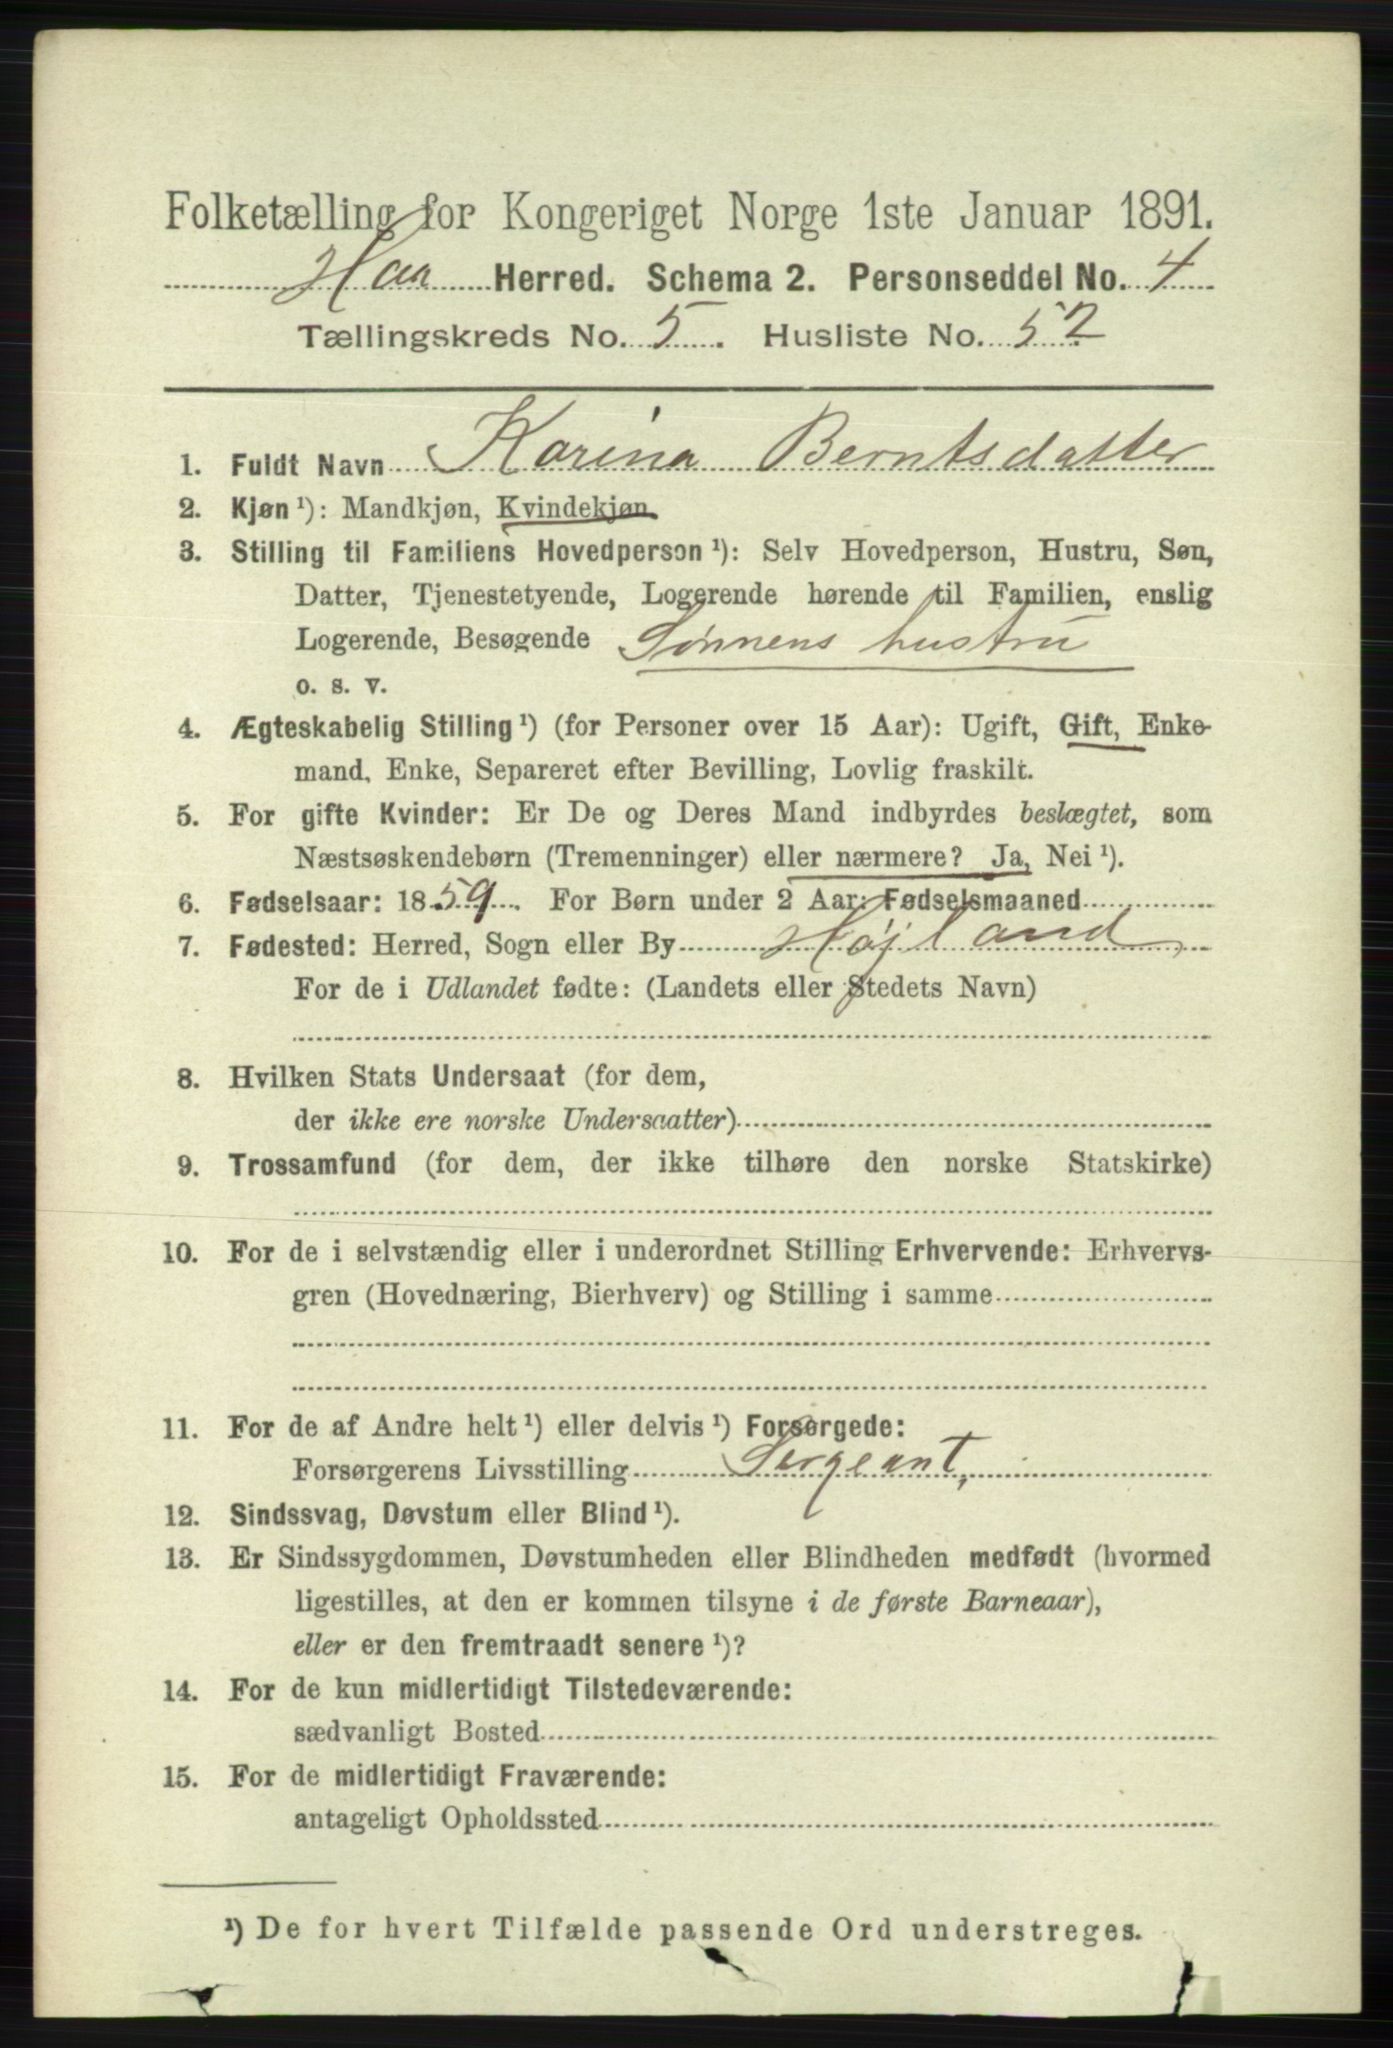 Folketælling for Kongeriget Norge 1ste Januar 1891.
Haa Herred. Schema 2. Personseddel No. 4
Tællingskreds No. 5. Husliste No. 52
1. Fuldt Navn Karina Berntsdatter
2. Kjøn ¹): Mandkjøn, Kvindekjøn
3. Stilling til Familiens Hovedperson ¹): Selv Hovedperson, Hustru, Søn,
Datter, Tjenestetyende, Logerende hørende til Familien, enslig
Logerende, Besøgende Sønnens hustru
o. s. v.
4. Ægteskabelig Stilling ¹) (for Personer over 15 Aar): Ugift, Gift, Enke-
mand, Enke, Separeret efter Bevilling, Lovlig fraskilt.
5. For gifte Kvinder: Er De og Deres Mand indbyrdes beslægtet, som
Næstsøskendebørn (Tremenninger) eller nærmere? Ja, Nei ¹).
6. Fødselsaar: 1859. For Børn under 2 Aar: Fødselsmaaned
7. Fødested: Herred, Sogn eller By Højland,
For de i Udlandet fødte: (Landets eller Stedets Navn)
8. Hvilken Stats Undersaat (for dem,
der ikke ere norske Undersaatter)
9. Trossamfund (for dem, der ikke tilhøre den norske Statskirke)
10. For de i selvstændig eller i underordnet Stilling Erhvervende: Erhvervs-
gren (Hovednæring, Bierhverv) og Stilling i samme
11. For de af Andre helt ¹) eller delvis ¹) Forsørgede:
Forsørgerens Livsstilling Sergeant,
12. Sindssvag, Døvstum eller Blind ¹).
13. Er Sindssygdommen, Døvstumheden eller Blindheden medfødt (hvormed
ligestilles, at den er kommen tilsyne i de første Barneaar),
eller er den fremtraadt senere ¹)?
14. For de kun midlertidigt Tilstedeværende:
sædvanligt Bosted
15. For de midlertidigt Fraværende:
antageligt Opholdssted
¹) De for hvert Tilfælde passende Ord understreges.